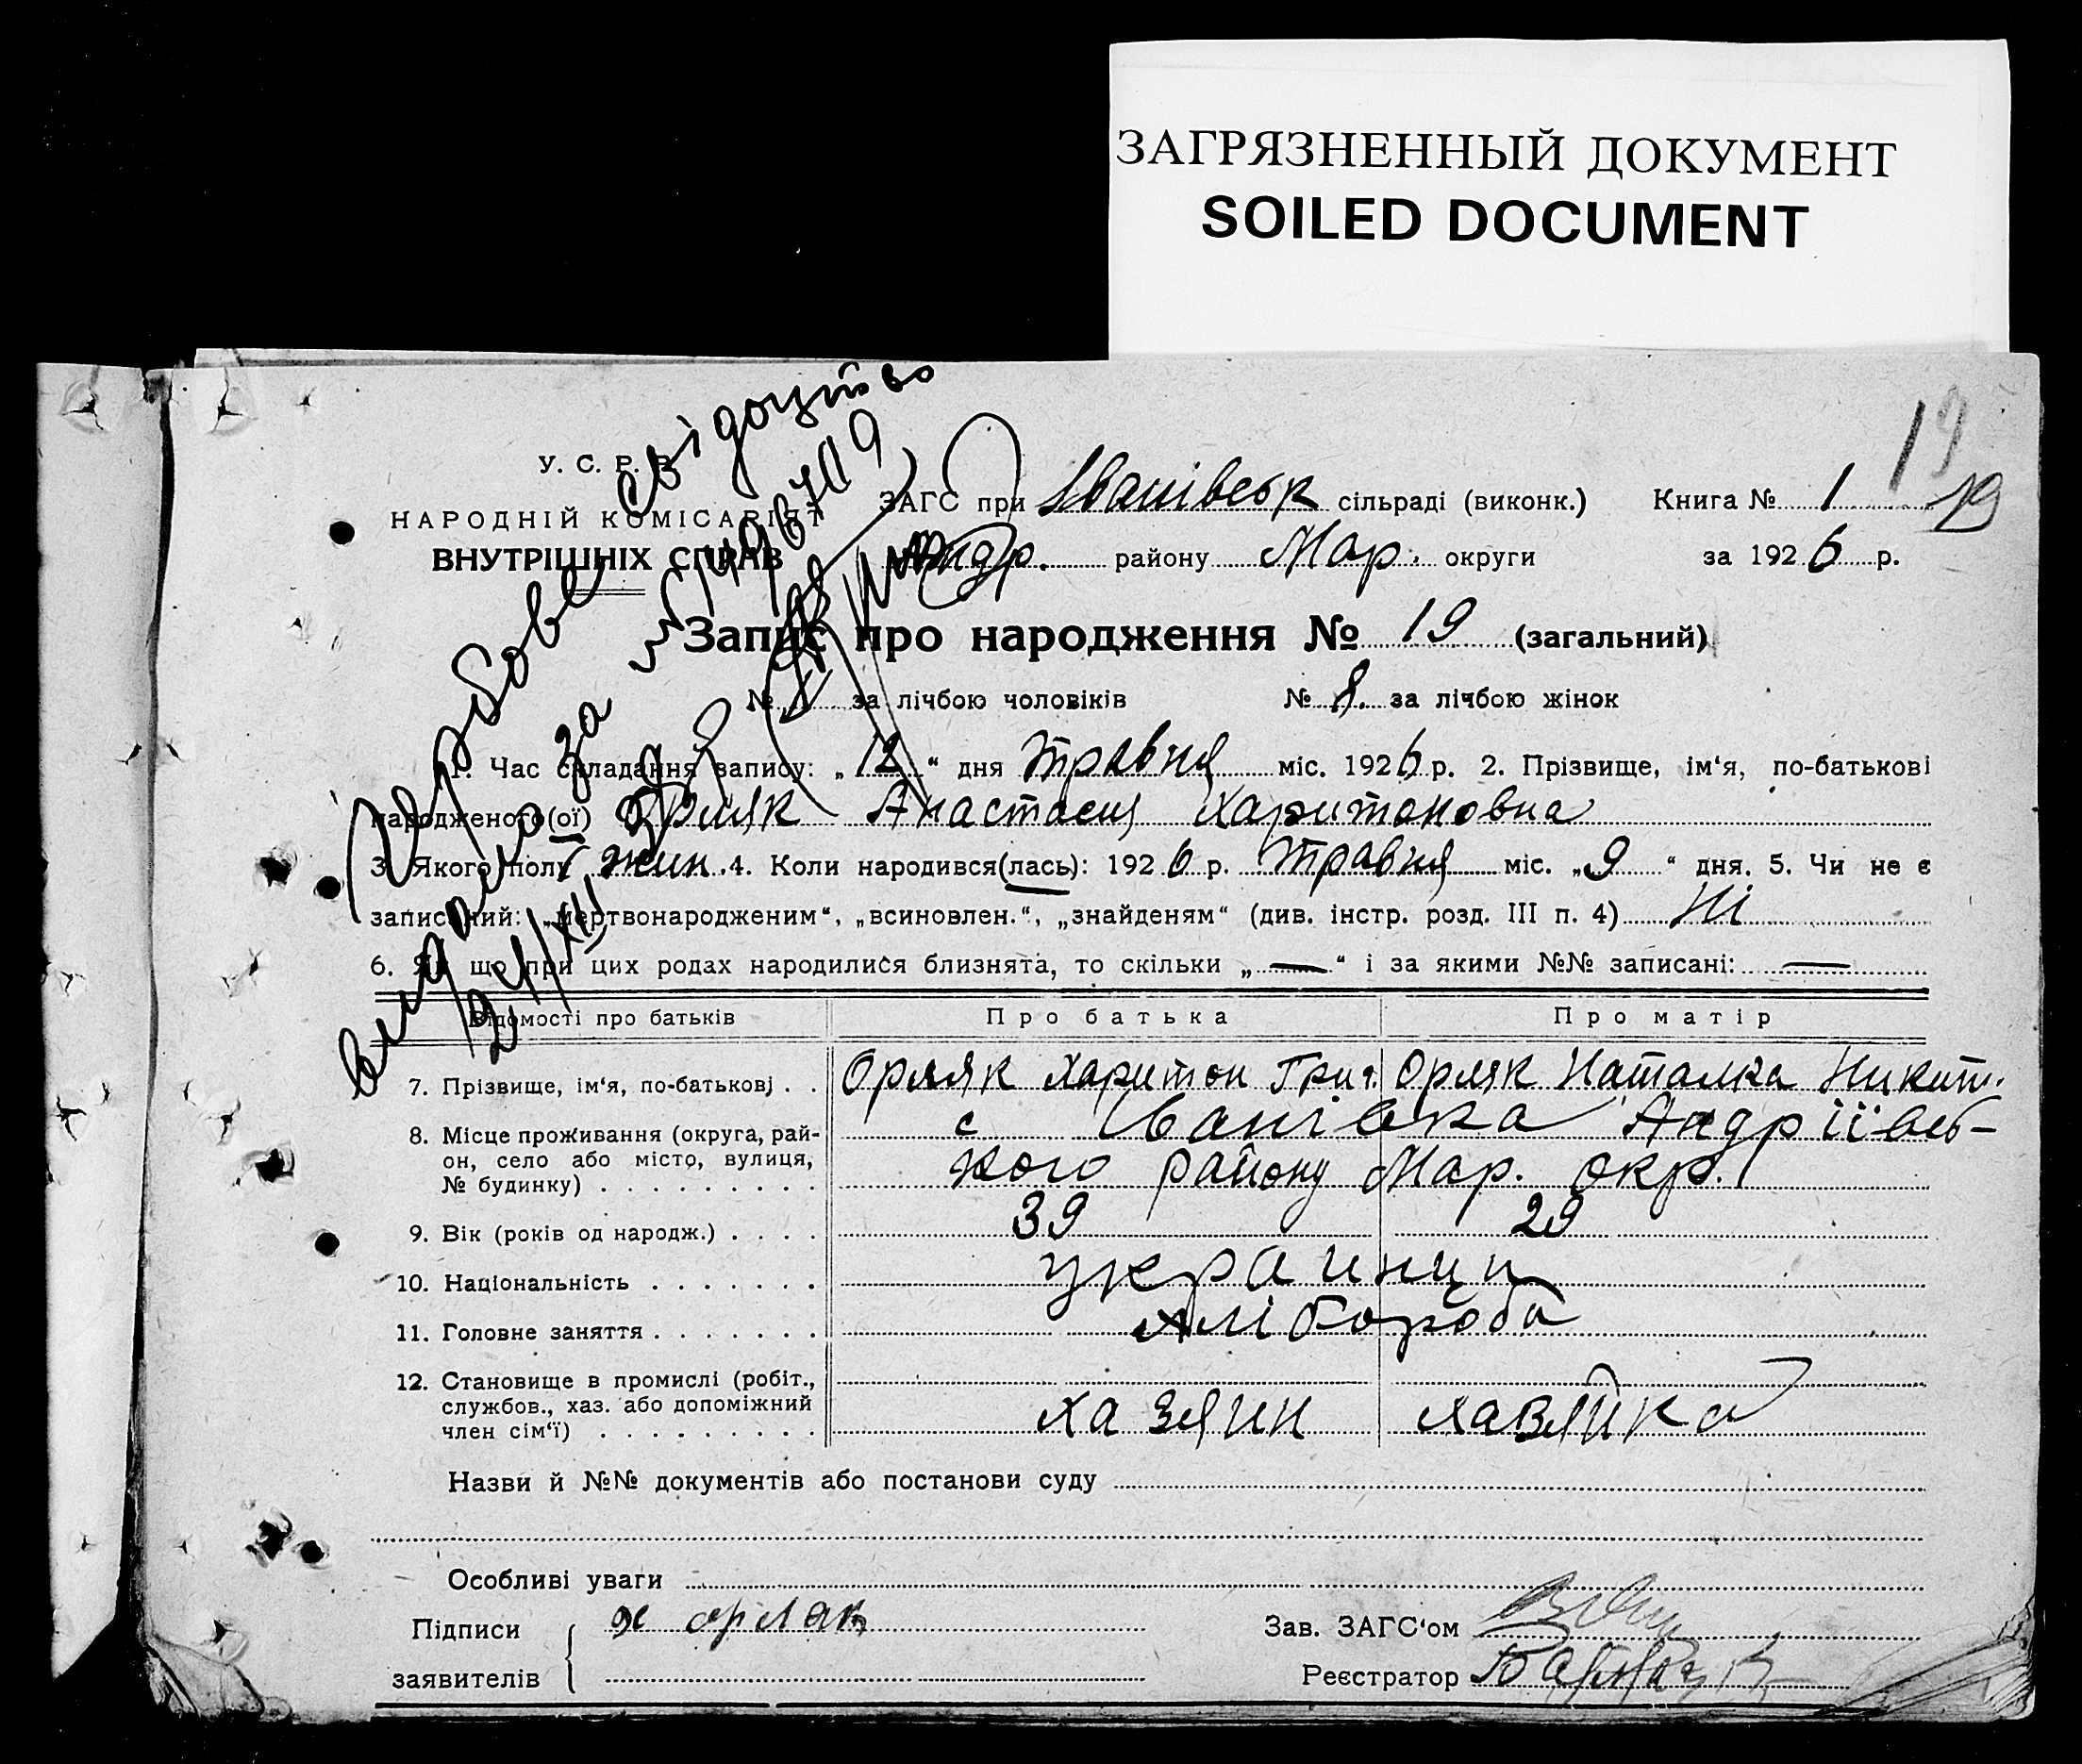 ЗАГРЯЗНЕННЫЙ ДОКУМЕНТ
SOILED DOCUMENT
19
У. С. Р. Р.
НАРОДНІЙ КОМІСАРІЯТ
ВНУТРІШНІХ СПРАВ
ЗАГС при Іванівськ сільраді (виконк.) Книга № 1 19
Андр. району Мар. округи за 1926 р.
свідоцтво
видано за
Запис про народження № 19 (загальний)
№ за лічбою чоловіків № 8. за лічбою жінок
1. Час складання запису: „12“ дня травня міс. 1926 р. 2. Прізвище, ім‘я, по-батькові
народженого(ої) Орляк Анастасия Харитоновна
3. Якого полу жин. 4. Коли народився(лась): 1926 р. травня міс. „9“ дня. 5. Чи не є
записаний: „мертвонародженим“, „всиновлен.“, „знайденям“ (див. інстр. розд. III п. 4) Ні
6. Як що при цих родах народилися близнята, то скільки „—“ і за якими №№ записані: —
Відомості про батьків Про батька Про матір
7. Прізвище, ім‘я, по-батькові . . Орляк Харитон Григ. Орляк Наталка Никит.
8. Місце проживання (округа, рай-
он, село або місто, вулиця,
№ будинку) . . . . . . . . .
с Іванівка Андріївсь-
кого району Мар. окр.
9. Вік (років од народж.) . . . . 39 29
10. Національність . . . . . . . украинци
11. Головне заняття . . . . . . . хлібороби
12. Становище в промислі (робіт.,
службов., хаз. або допоміжний
член сім‘ї) . . . . . . . . .
хазяин хазяйка
Назви й №№ документів або постанови суду
Особливі уваги
Підписи
заявителів
х орлак
Зав. ЗАГС‘ом
Реєстратор